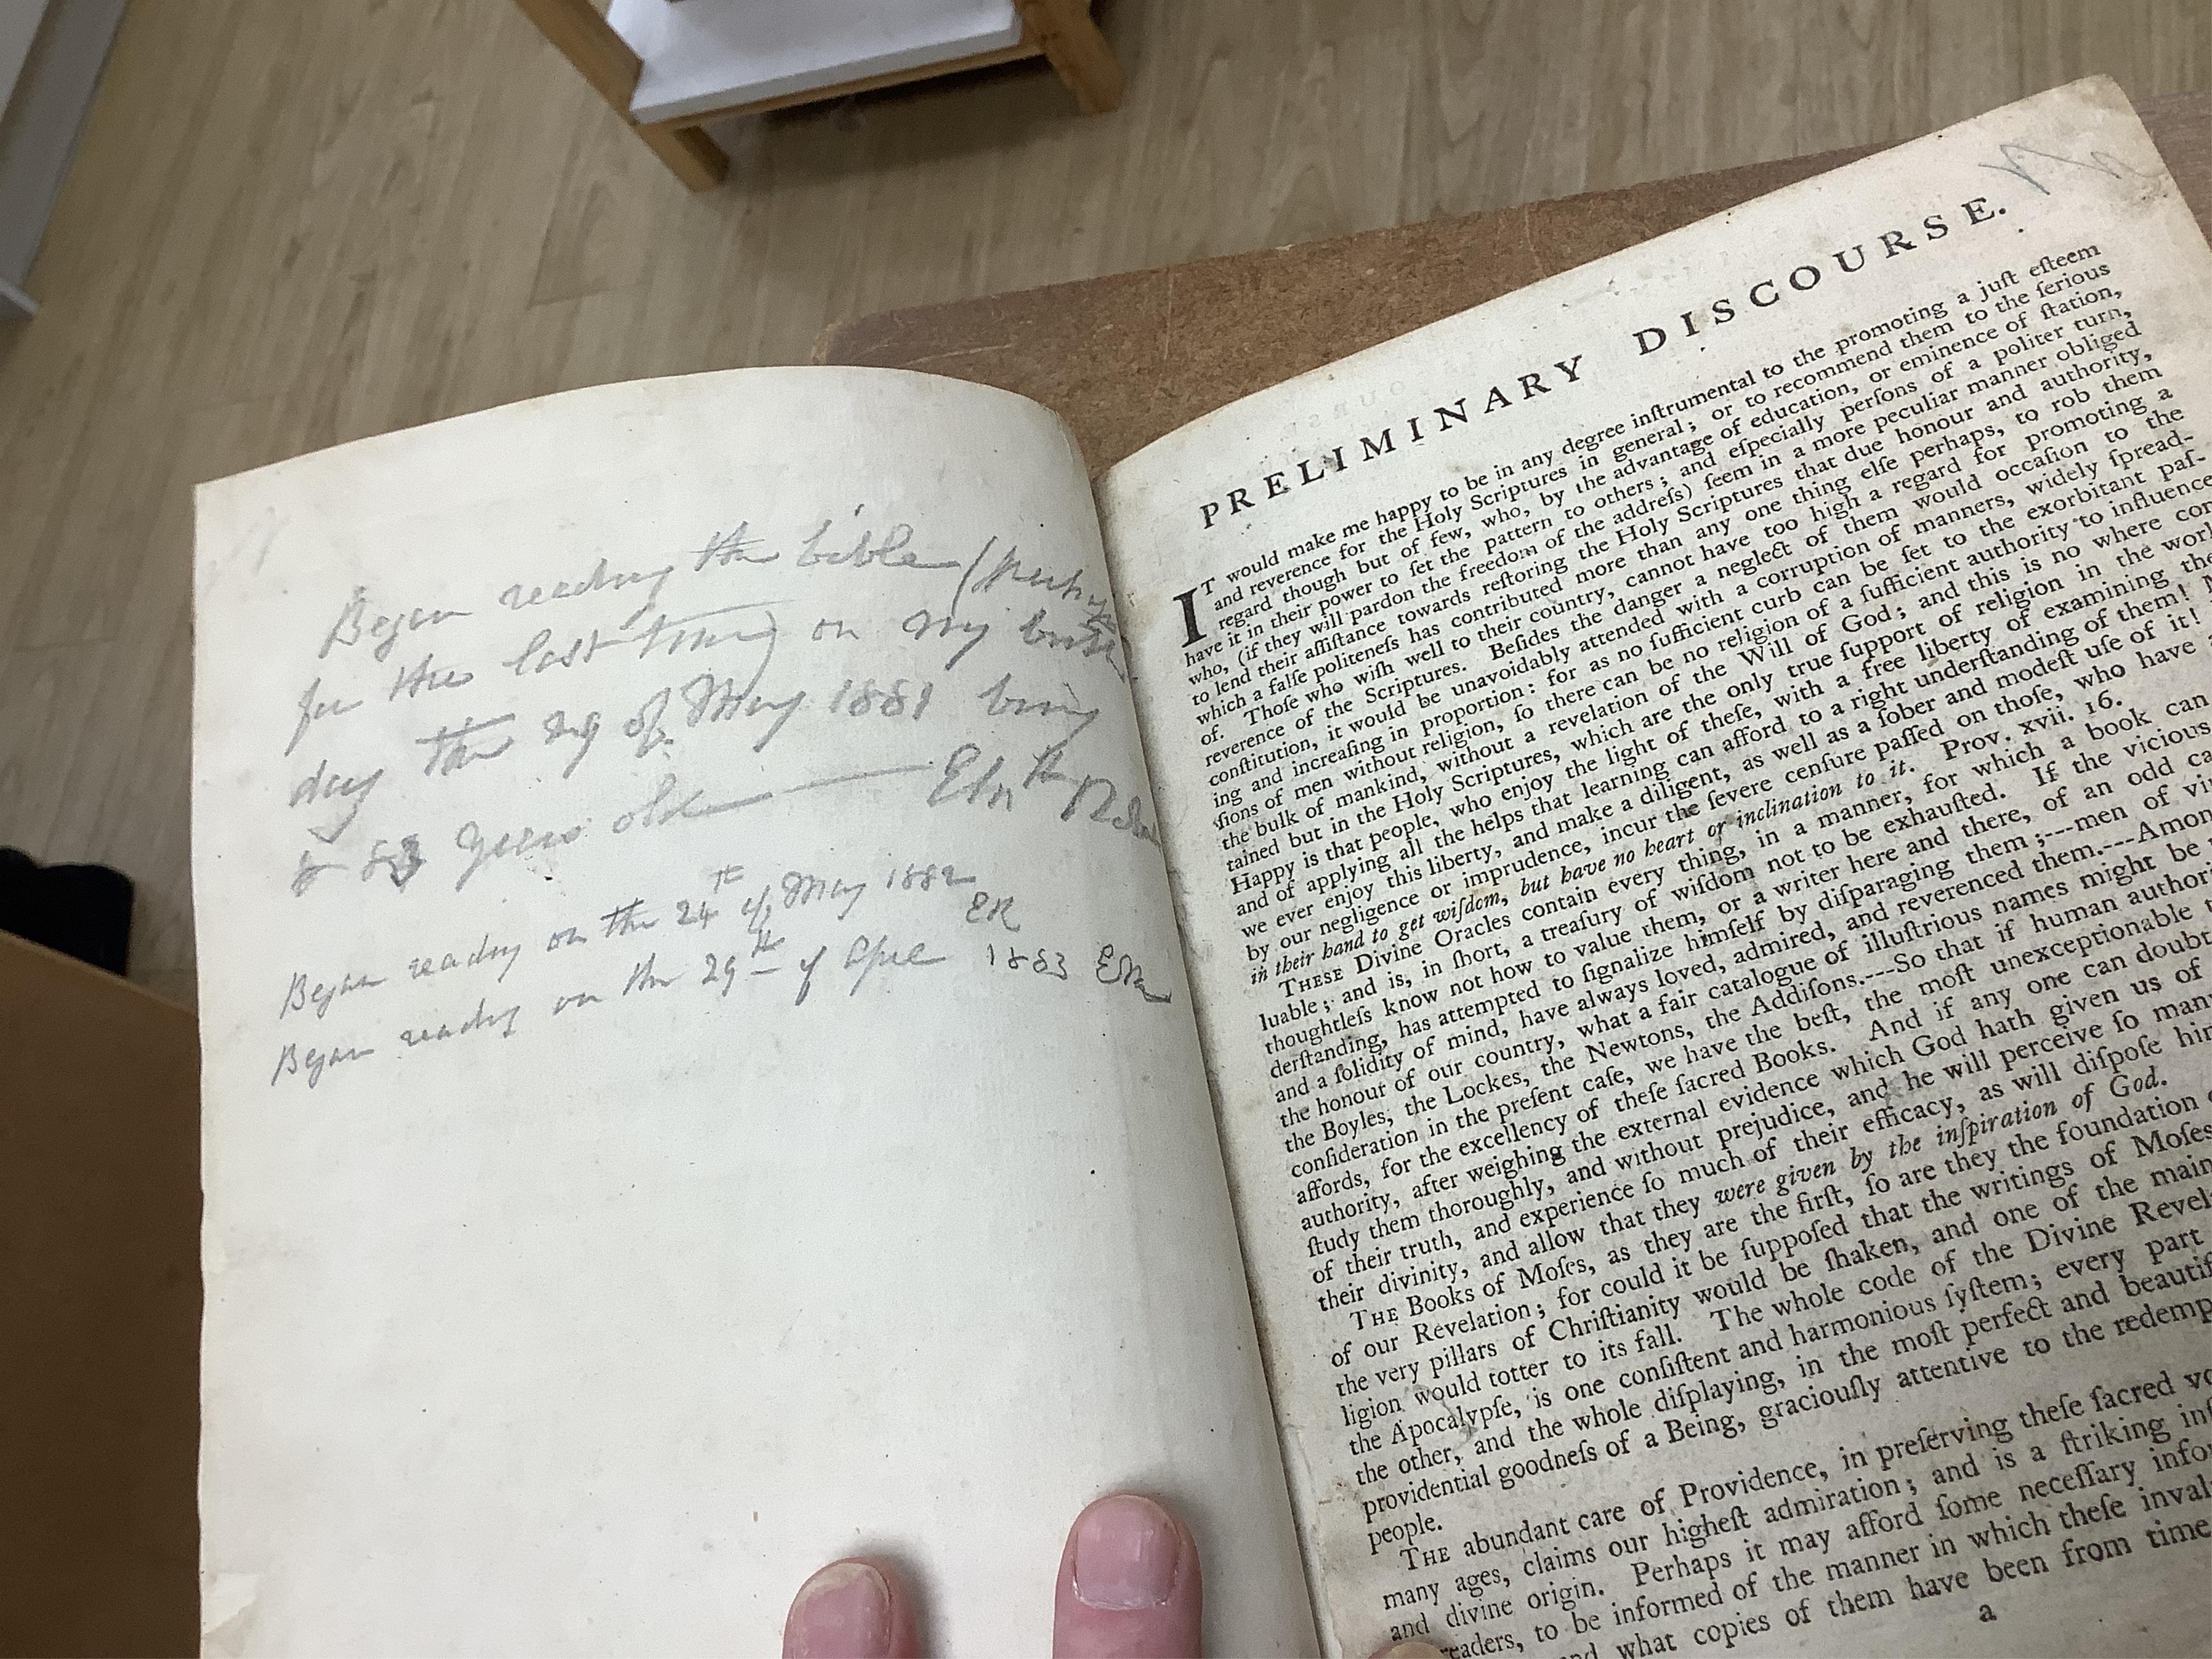 Began reading the bible (perhaps
for the last time) on my birth
day the 29 of May 1881 being
83 years old — Elnth
Began reading on the 24th of May 1882 ER
Began reading on the 29th of Apre 1883 ER
PRELIMINARY DISCOURSE.
IT would make me happy to be in any degree inſtrumental to the promoting a juſt eſteem
and reverence for the Holy Scriptures in general; or to recommend them to the ſerious
regard though but of few, who, by the advantage of education, or eminence of ſtation,
have it in their power to ſet the pattern to others; and eſpecially perſons of a politer turn,
who, (if they will pardon the freedom of the addreſs) ſeem in a more peculiar manner obliged
to lend their aſſiſtance towards reſtoring the Holy Scriptures that due honour and authority,
which a falſe politeneſs has contributed more than any one thing elſe perhaps, to rob them
of. Thoſe who wiſh well to their country, cannot have too high a regard for promoting a
reverence of the Scriptures. Beſides the danger a neglect of them would occaſion to the
conſtitution, it would be unavoidably attended with a corruption of manners, widely ſpread-
ing and increaſing in proportion: for as no ſufficient curb can be ſet to the exorbitant paſ-
ſions of men without religion, ſo there can be no religion of a ſufficient authority to influence
the bulk of mankind, without a revelation of the Will of God; and this is no where con
tained but in the Holy Scriptures, which are the only true ſupport of religion in the worl
Happy is that people, who enjoy the light of theſe, with a free liberty of examining the
and of applying all the helps that learning can afford to a right underſtanding of them!
we ever enjoy this liberty, and make a diligent, as well as a ſober and modeſt uſe of it!
by our negligence or imprudence, incur the ſevere cenſure paſſed on thoſe, who have
in their hand to get wiſdom, but have no heart or inclination to it. Prov. xvii. 16.
THESE Divine Oracles contain every thing, in a manner, for which a book can
luable; and is, in ſhort, a treaſury of wiſdom not to be exhauſted. If the vicious
thoughtleſs know not how to value them, or a writer here and there, of an odd ca
derſtanding, has attempted to ſignalize himſelf by diſparaging them;---men of vi
and a ſolidity of mind, have always loved, admired, and reverenced them.---Amon
the honour of our country, what a fair catalogue of illuſtrious names might be
the Boyles, the Lockes, the Newtons, the Addiſons.----So that if human author
conſideration in the preſent caſe, we have the beſt, the moſt unexceptionable
affords, for the excellency of theſe ſacred Books. And if any one can doubt
authority, after weighing the external evidence which God hath given us of
ſtudy them thoroughly, and without prejudice, and he will perceive ſo man
of their truth, and experience ſo much of their efficacy, as will diſpoſe hi
their divinity, and allow that they were given by the inſpiration of God.
THE Books of Moſes, as they are the firſt, ſo are they the foundation
of our Revelation; for could it be ſuppoſed that the writings of Moſes
the very pillars of Chriſtianity would be ſhaken, and one of the main
ligion would totter to its fall. The whole code of the Divine Revel
the Apocalypſe, is one conſiſtent and harmonious ſyſtem; every part
the other, and the whole diſplaying, in the moſt perfect and beautif
providential goodneſs of a Being, graciouſly attentive to the redemp
people.
THE abundant care of Providence, in preſerving theſe ſacred vo
many ages, claims our higheſt admiration; and is a ſtriking inſ
and divine origin. Perhaps it may afford ſome neceſſary info
readers, to be informed of the manner in which theſe inval
what copies of them have been from time
a